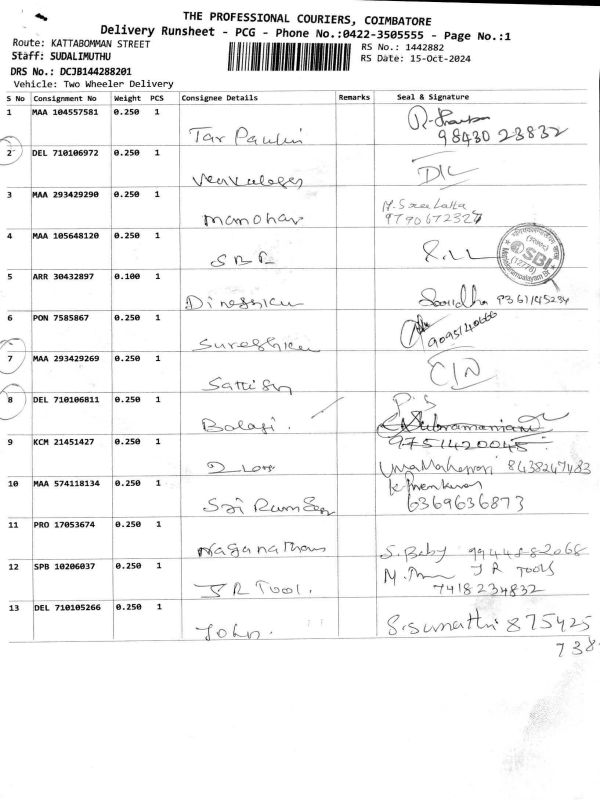 THE PROFESSIONAL COURIERS, COIMBATORE
Delivery Runsheet - PCG - Phone No.:0422-3505555 - Page No.:1
Route: KATTABOMMAN STREET
RS No.: 1442882
Staff: SUDALIMUTHU
RS Date: 15-Oct-2024
DRS No.: DCJB144288201
Vehicle: Two Wheeler Delivery
S No Consignment No Weight PCS Consignee Details Remarks Seal & Signature
1 MAA 104557581 0.250 1
Tar Paulin 98430 23832
2 DEL 710106972 0.250 1
3 MAA 293429290 0.250 1 M.Sree Latha
manohar 9790672327
4 MAA 105648120 0.250 1
SBI
5 ARR 30432897 0.100 1
6 PON 7585867 0.250 1
9095140666
7 MAA 293429269 0.250 1
8 DEL 710106811 0.250 1 P.S
Balaji. Subramaniam
9 KCM 21451427 0.250 1 9751420045
UmaMaheswari 8438247483
10 MAA 574118134 0.250 1
6369636873
11 PRO 17053674 0.250 1
Naganathan S. Baby 9944882068
12 SPB 10206037 0.250 1 JR TOOLS
JR TOOL. 7418234832
13 DEL 710105266 0.250 1
John. S.Sumathi 875425
738